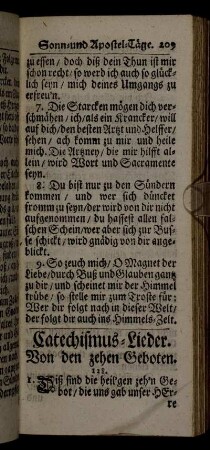 Sonn-und Apostel-Täge. 209
zu essen / doch diß dein Thun ist mir
schon recht / so werd ich auch so glück-
lich seyn / mich deines Umgangs zu
erfreu'n.
7. Die Starcken mögen dich ver-
schmähen / ich / als ein Krancker / will
auf dich / den besten Artzt und Helffer /
sehen / ach komm zu mir und heile
mich. Die Artzney / die mir hilfft al-
lein / wird Wort und Sacramente
seyn.
8. Du bist nur zu den Sündern
kommen / und wer sich düncket
fromm zu seyn / der wird von dir nicht
aufgenommen / du hassest allen fal-
schen Schein / wer aber sich zur Bus-
se schickt / wird gnädig von dir ange-
blickt.
9. So zeuch mich / O Magnet der
Liebe / durch Buß und Glauben gantz
zu dir / und scheinet mir der Himmel
trübe / so stelle mir zum Troste für:
Wer dir folgt nach in dieser Welt /
der folgt dir auch ins Himmels-Zelt.
Catechismus-Lieder.
Von den zehen Geboten.
123.
1. Diß sind die heil'gen zeh'n Ge-
bot / die uns gab unser HEr-
re